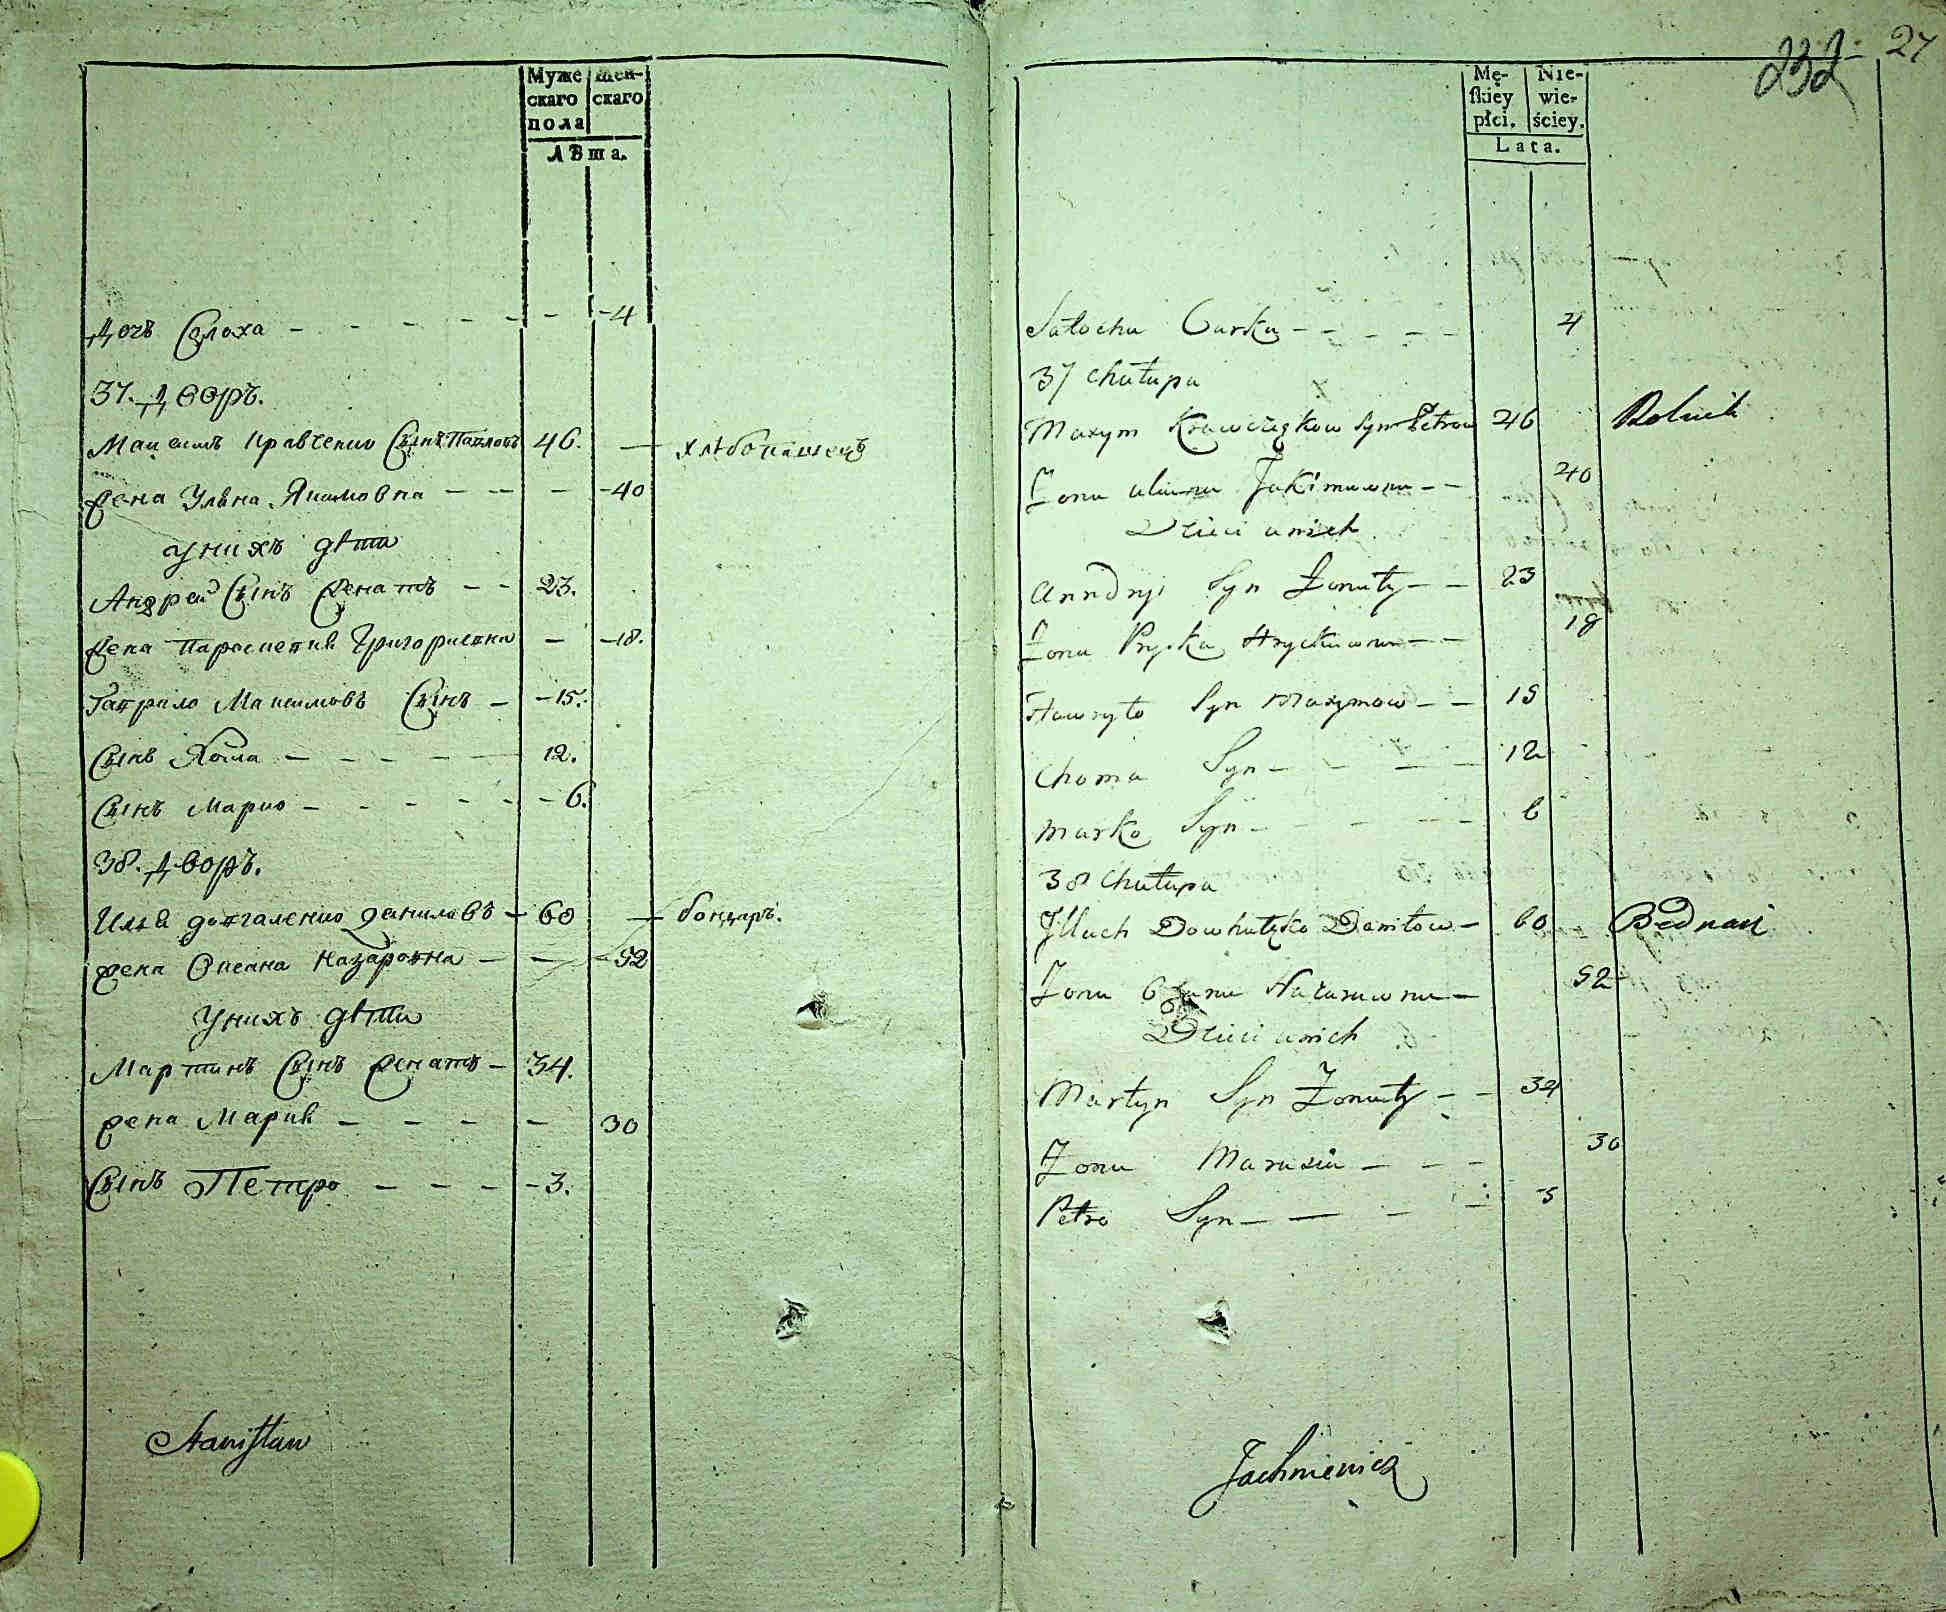 Муже
скаго
пола
Жен-
скаго
Лѣта.
Дочь Солоха - - - - - - - 4
37. Дворъ.
Максимъ Кравченко Сынъ Павловъ 46. — хлѣбопашецъ
Жена Уляна Якимовна - - - - 40
у нихъ дѣти
Андрей Сынъ Женатъ - - 23.
Жена Параскевия Григориевна - - 18.
Гаврило Максимовъ Сынъ - - 15.
Сынъ Хома - - - - - 12.
Сынъ Марко - - - - - - 6.
38. Дворъ.
Илья Довгаленко Даниловъ - 60 — бондаръ.
Жена Оксана Назаровна - - - 52
У нихъ дѣти
Мартинъ Сынъ Женатъ - 34.
Жена Мария - - - - - 30
Сынъ Петро - - - - - 3.
Stanisław
232 - 27
Mę-
skiey
płci.
Nie-
wie-
ściey.
Lata.
Sołocha Curka - - - - - 4
37 Chałupa
Maxym Krawczękow Syn Petrow 46 Rolnik
Zona Uliana Jakimowna - - 40
Dzieci u nich
Anndryi Syn Zonaty - - 23
Zona Pryska Hryckowna - - 18
Hawryło Syn Maxymow - - 15
Choma Syn - - - - 12
Marko Syn - - - - 6
38 Chałupa
Illiach Dowhalęko Daniłow - 60 Bednarz
Zona Oxana Nazarowna - 52
Dzieci u nich
Martyn Syn Zonaty - - 34
Zona Marusia - - - 30
Petro Syn - - - - 5
Jachniewicz